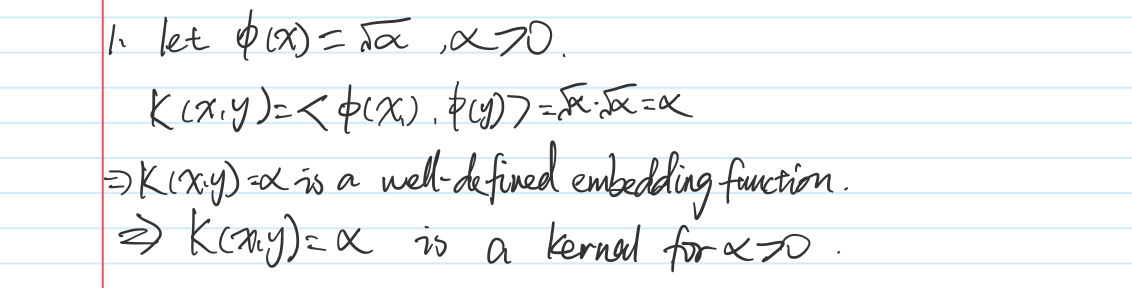 1. let ϕ(x) = √α , α>0.
K(x,y)=<ϕ(x), ϕ(y)>=√α·√α=α
⇒K(x,y)=α is a well-defined embedding function.
⇒ K(x,y)=α is a kernal for α>0.